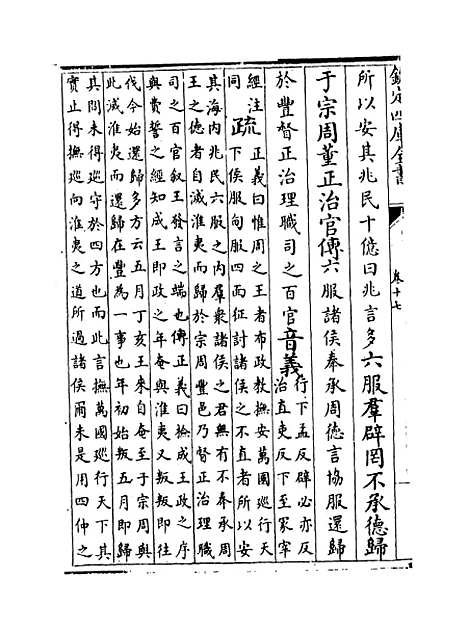 欽定四庫全書
卷十七
所以安其兆民十億曰兆言多六服羣辟罔不承德歸
于宗周董正治官傳六服諸侯奉承周德言協服還歸
於豐督正治理職司之百官音義行下孟反辟必亦反
治直吏反下至冢宰
經注
同疏正義曰惟周之王者布政教撫安萬國廵行天
下侯服甸服四面征討諸侯之不直者所以安
其海內兆民六服之內羣衆諸侯之君無有不奉承周
王之德者自滅淮夷而歸於宗周豐邑乃督正治理職
司之百官叙王發言之端也傳正義曰檢成王政之序
與費誓之經知成王即政之年奄與淮夷又叛叛即往
伐今始還歸多方云五月丁亥王來自奄至于宗周與
此滅淮夷而還歸在豐為一事也年初始叛五月即歸
其間未得廵守於四方也而此言撫萬國廵行天下其
實止得撫廵向淮夷之道所過諸侯爾未是用四仲之